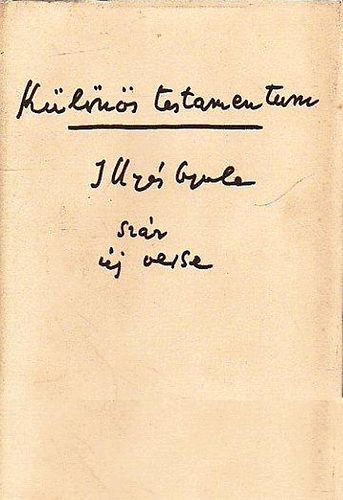 Különös testamentum
Illyés Gyula
száz
új verse